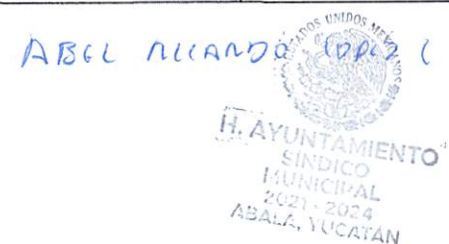 ABEL
ESTADOS UNIDOS MEXICANOS
H. AYUNTAMIENTO
SINDICO
MUNICIPAL
2021 - 2024
ABALA, YUCATAN